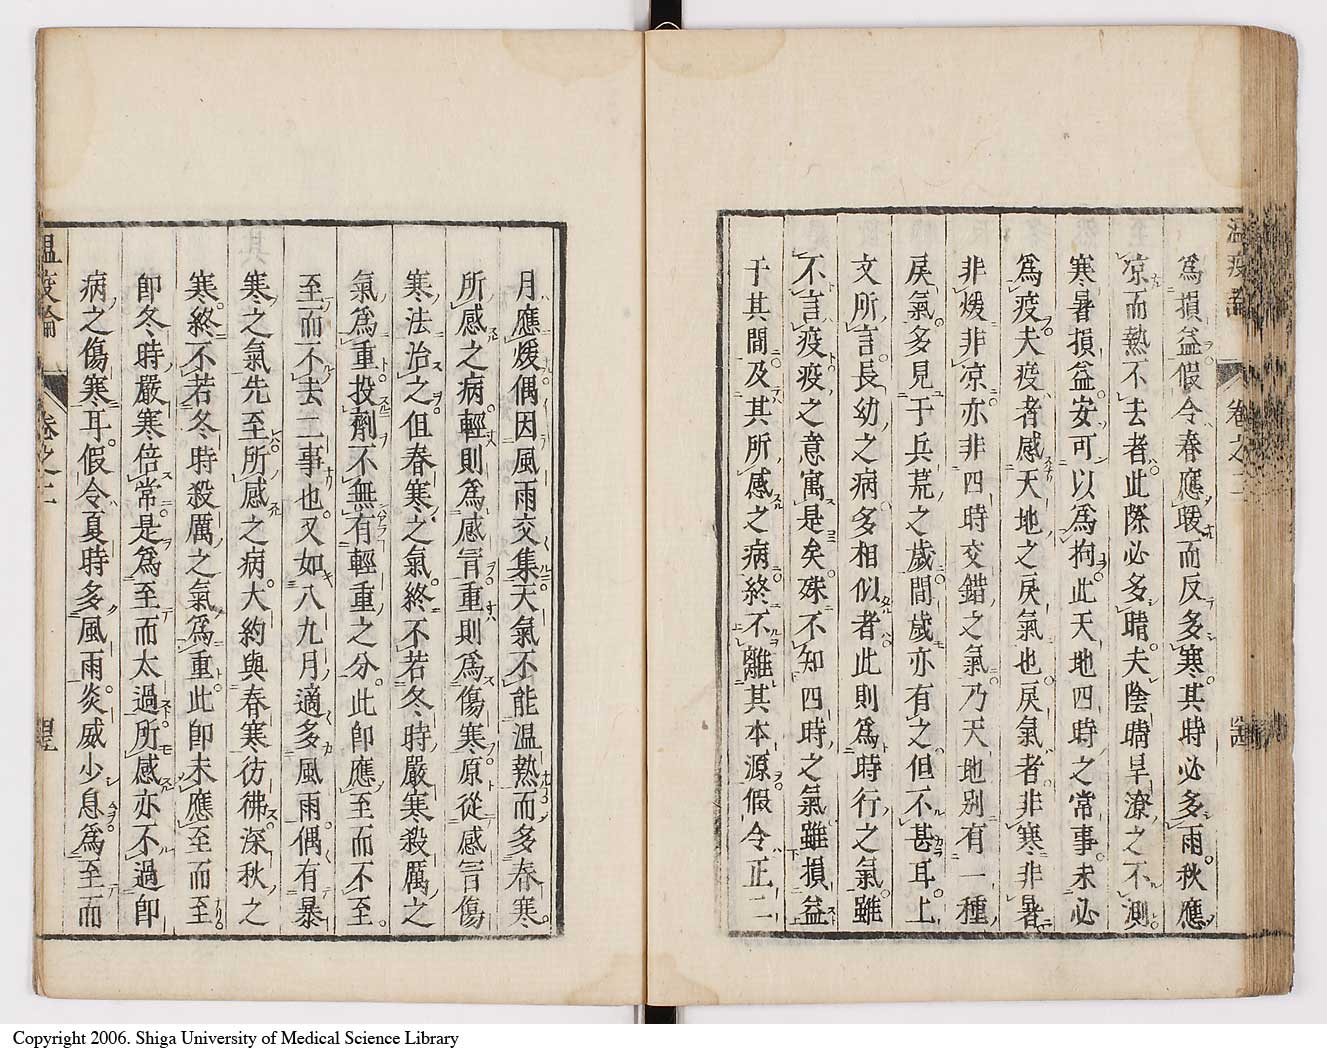 爲損益假令春應暖而反多寒其時必多雨秋應
凉而熱不去者此際必多晴夫陰晴旱潦之不測
寒暑損益安可以爲拘此天地四時之常事未必
爲疫夫疫者感天地之戾氣也戾氣者非寒非暑
非煖非凉亦非四時交錯之氣乃天地別有一種
戾氣多見于兵荒之歲間歲亦有之但不甚耳上
文所言長幼之病多相似者此則爲時行之氣雖
不言疫疫之意寓是矣殊不知四時之氣雖損益
于其間及其所感之病終不離其本源假令正二
月應煖偶因風雨交集天氣不能温熱而多春寒
所感之病輕則爲感冒重則爲傷寒原從感冒傷
寒法治之但春寒之氣終不若冬時嚴寒殺厲之
氣爲重投劑不無有輕重之分此即應至而不至
至而不去二事也又如八九月適多風雨偶有暴
寒之氣先至所感之病大約與春寒彷彿深秋之
寒終不若冬時殺厲之氣爲重此即未應至而至
即冬時嚴寒倍常是爲至而太過所感亦不過即
病之傷寒耳假令夏時多風雨炎威少息爲至而
温疫論
卷之二
Copyright 2006. Shiga University of Medical Science Library